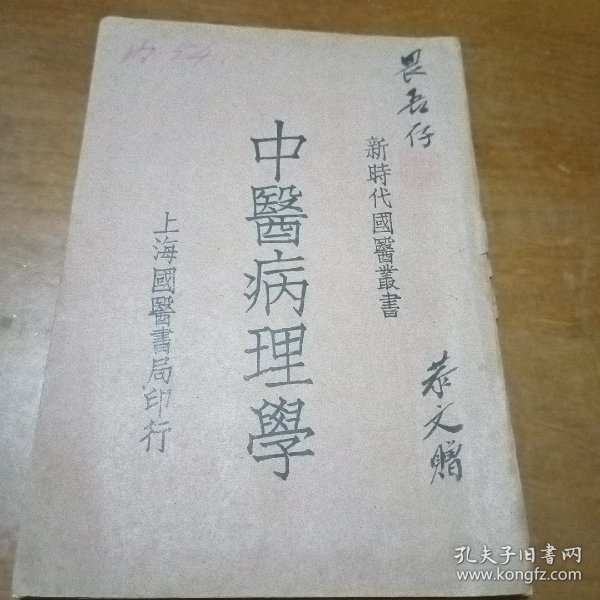 畏吾仔
恭文贈
新時代國醫叢書
中醫病理學
上海國醫書局印行
孔夫子旧书网
www.kongfz.com